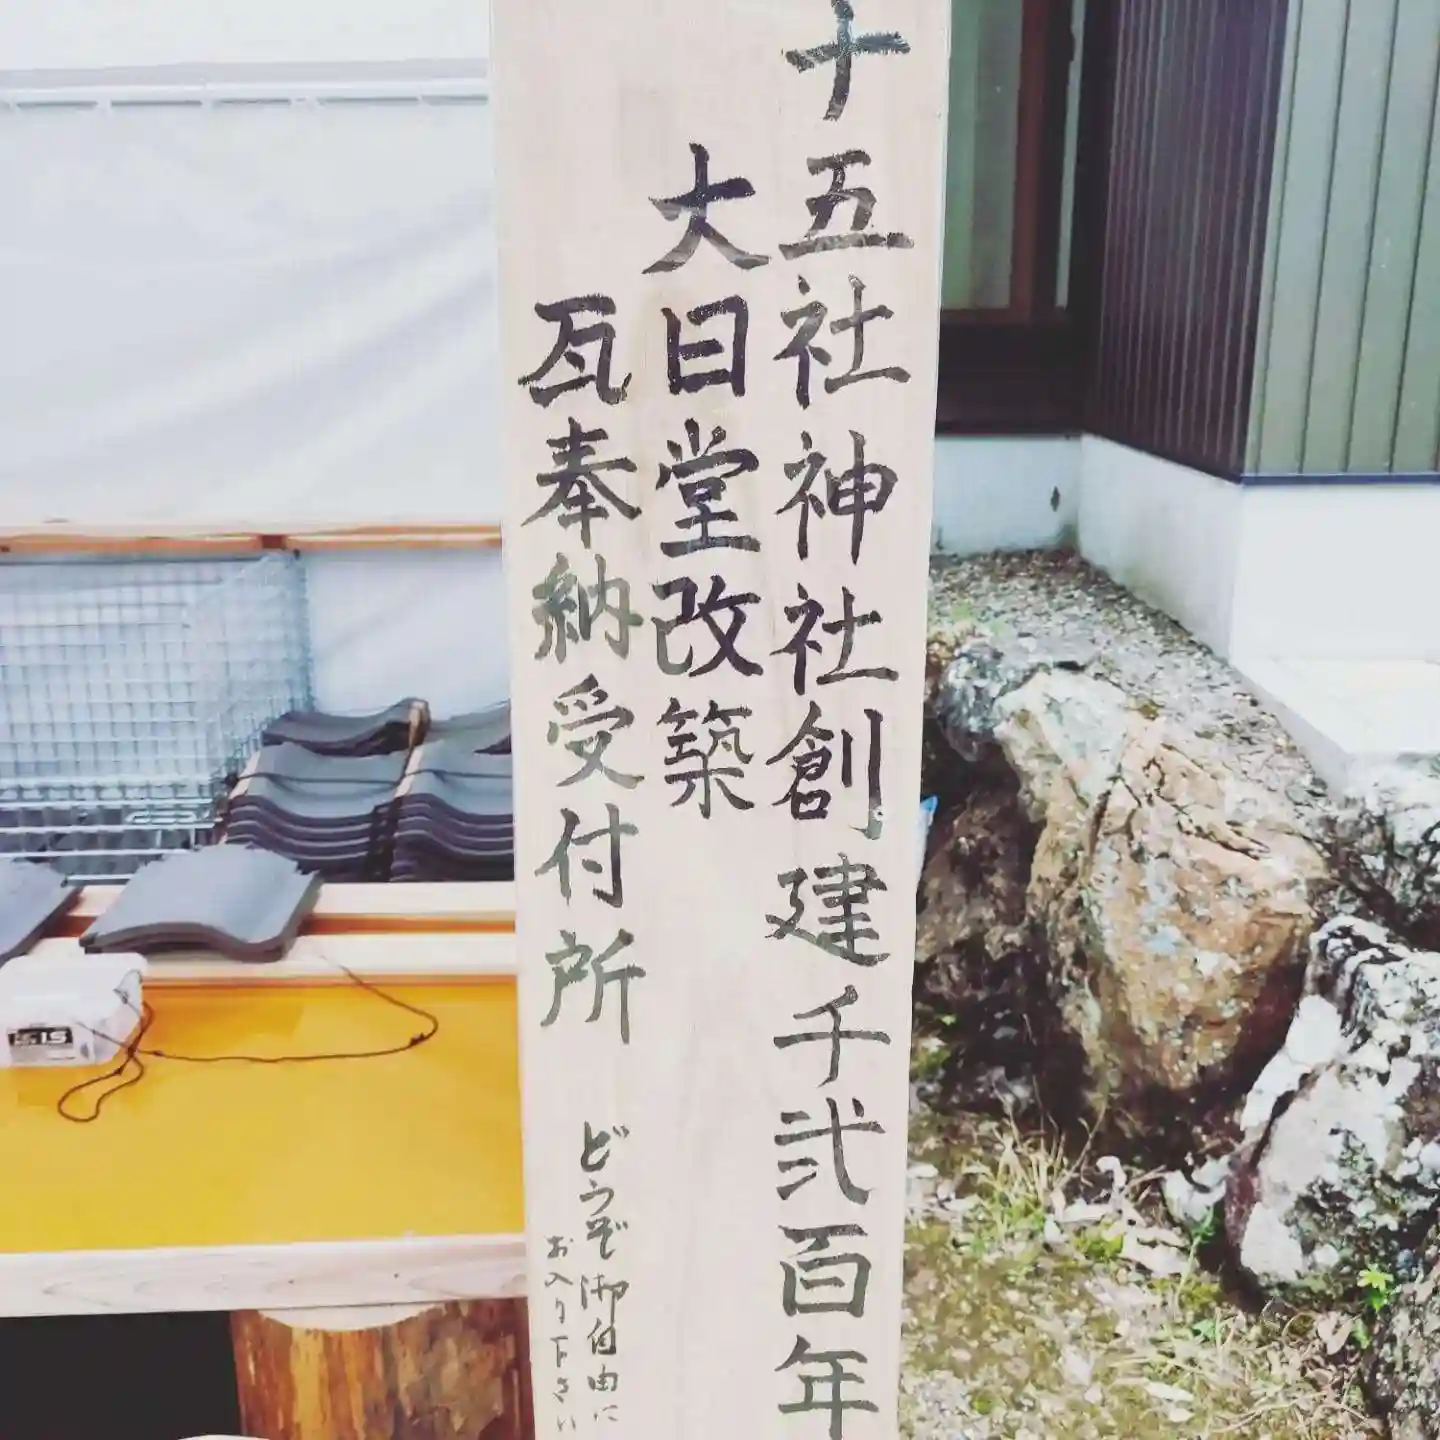 十五社神社創建千弐百年
大日堂改築
瓦奉納受付所
どうぞ御自由に
お入り下さい
15